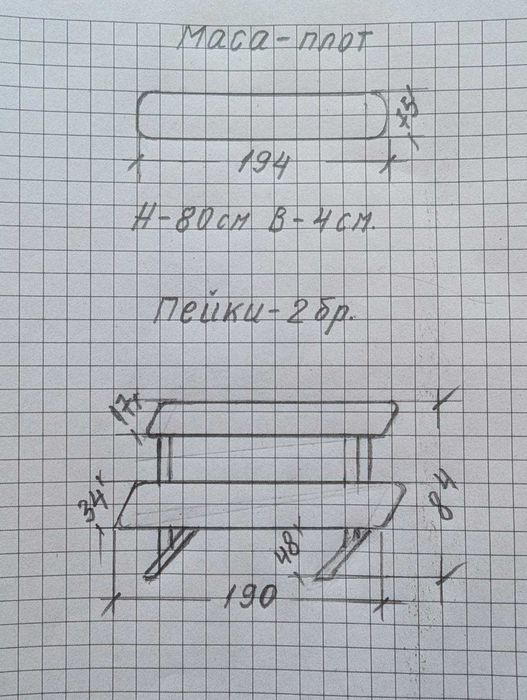 Маса-плот
75
194
H-80см B-4см.
Пейки-2бр.
17
34
84
48
190